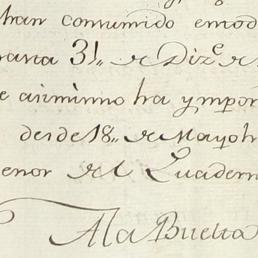 han consumido en od
rata 31,, de Diz.e de
e asimismo ha ympor
desde 18,, de Mayo h
enor del Quadern
A la Buelta